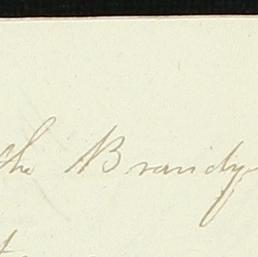 the Brandy